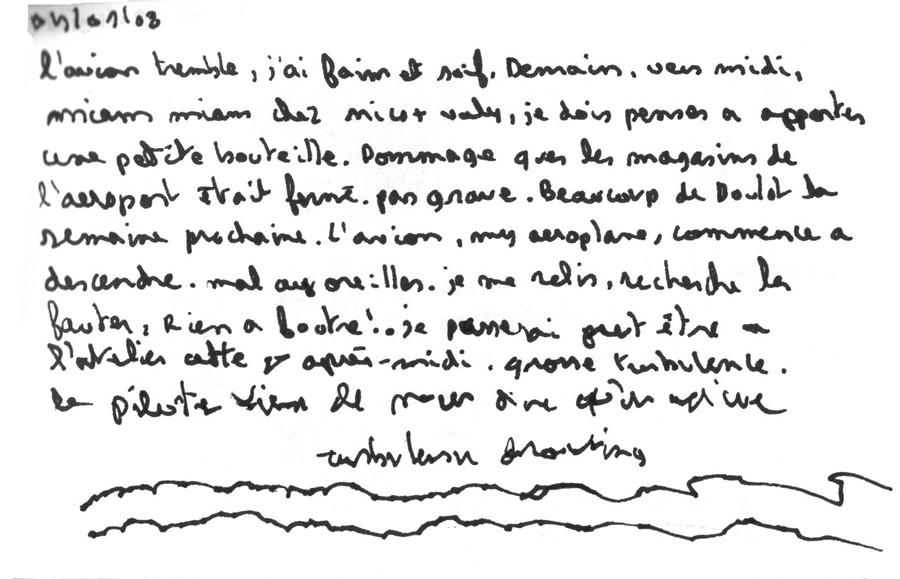 04/01/03
l'avion tremble, j'ai faim et soif. Demain, vers midi,
miam miam chez nico + valy, je dois penser a apporter
une petite bouteille. Dommage que les magasins de
l'aeroport était fermé. pas grave. Beaucoup de Boulot la
semaine prochaine. L'avion, my aeroplane, commence a
descendre. mal aux oreilles. je me relis, recherche les
fautes, Rien a foutre!.. je passerai peut être a
l'atelier cette après-midi. grosse turbulence.
le pilote vien de nous dire qu'
turbulence drawing